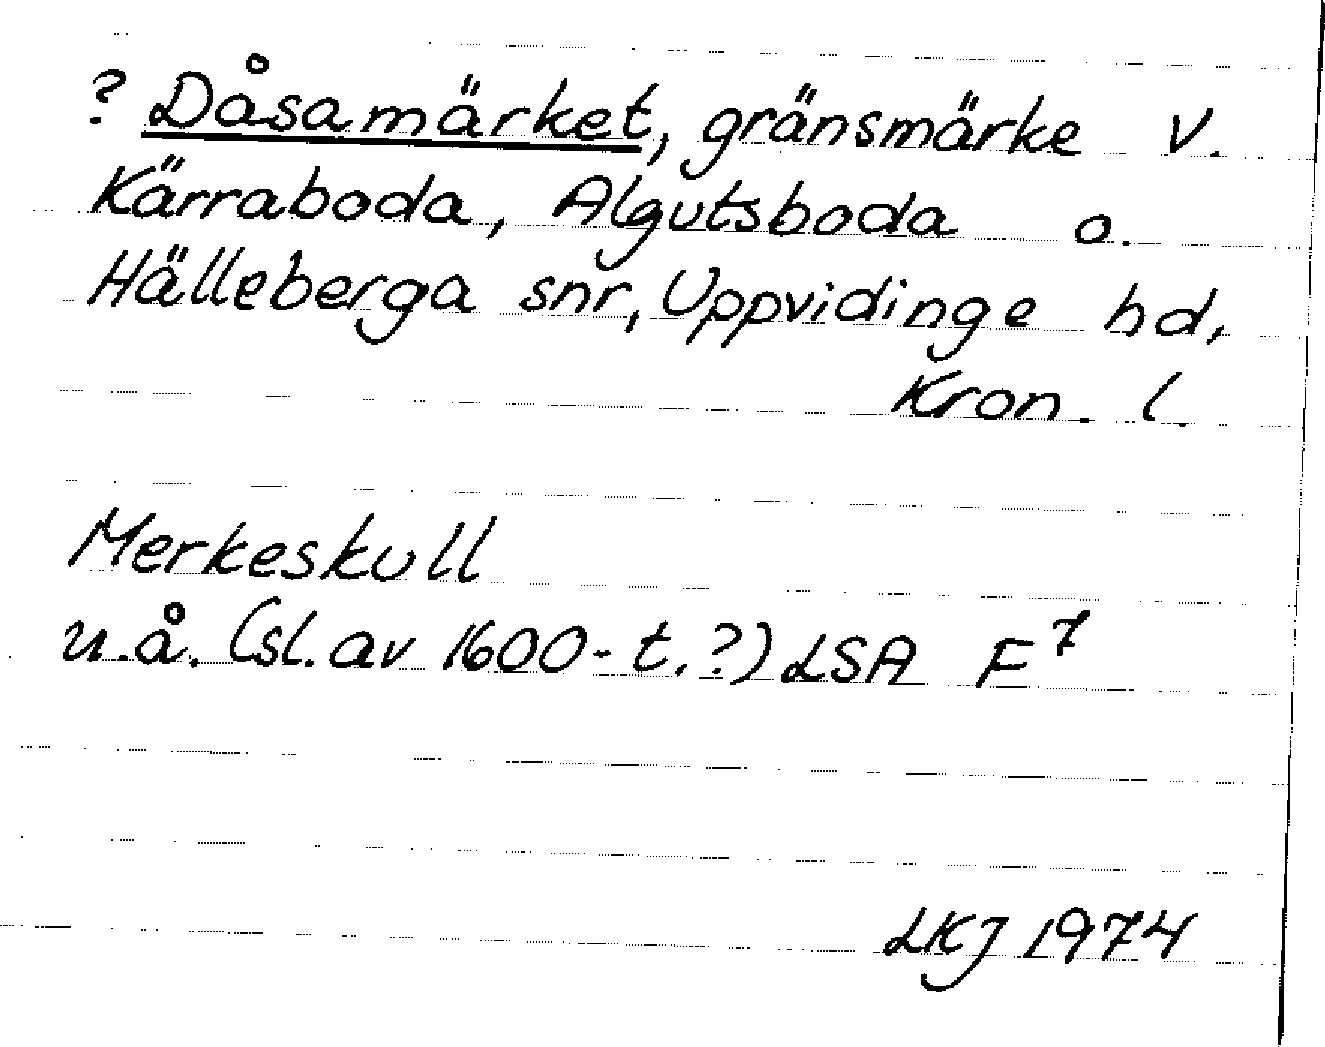 ? Dåsamärket, gränsmärke v.
Kärraboda, Algutsboda o.
Hälleberga snr, Uppvidinge hd,
Kron. l.
Merkeskull
u.å. (sl. av 1600-t.?) LSA F⁷
LKJ 1974